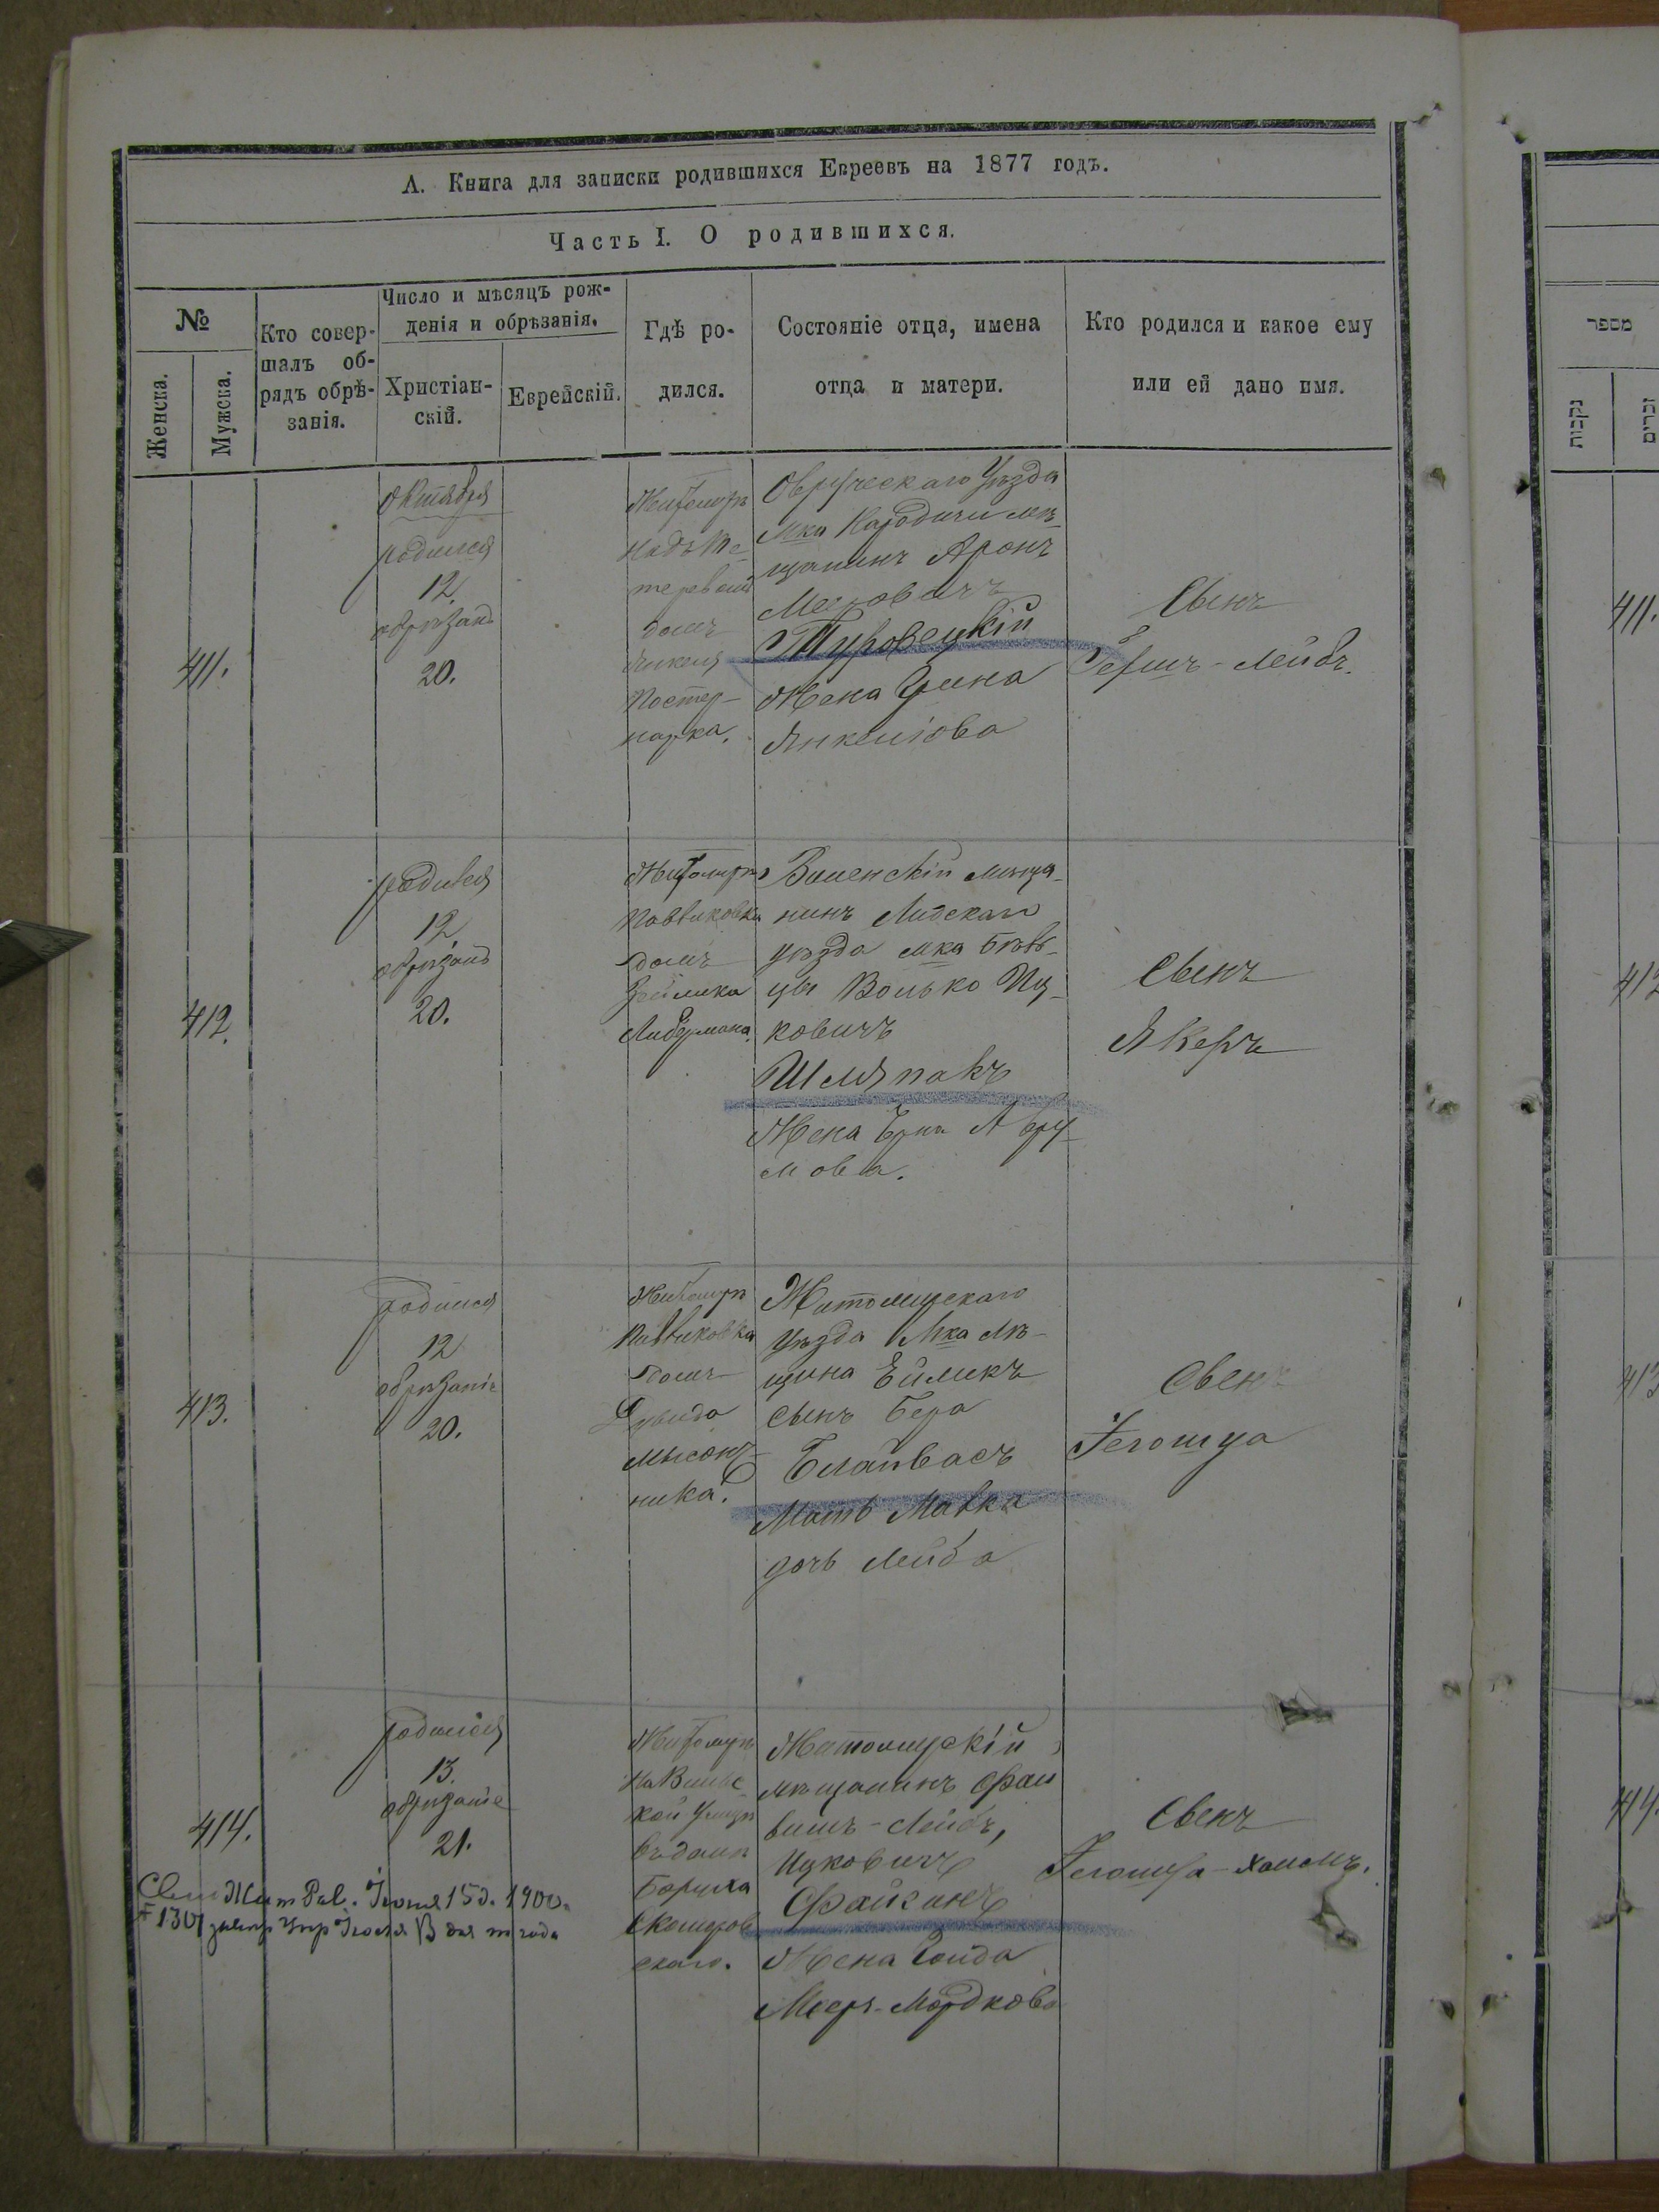 А. Книга для записки родившихся Евреевъ на 1877 годъ.
Часть I. О родившихся.
№
Женска.
Мужска.
Кто совер-
шалъ об-
рядъ обрѣ-
занія.
Число и мѣсяцъ рож-
денія и обрѣзанія.
Христіан-
скій.
Еврейскій.
Гдѣ ро-
дился.
Состояніе отца, имена
отца и матери.
Кто родился и какое ему
или ей дано имя.
מספר
נקבות
זכרים
411.
Октября
родился
12.
обрѣзанъ
20.
Житомиръ
домъ
Янкеля
Постер-
нарка.
Овручскаго Уѣзда
Мка Народичи мѣ-
щанинъ Аронъ
Меровичъ
Туровецкій
Жена
Янкеліова
Сынъ
Гершъ-Лейбъ.
411.
412.
родился
12
обрѣзанъ
20.
Житомиръ
Павликовка
домъ
Либермана.
Виленскій мѣща-
нинъ Лидскаго
уѣзда мка
Волько Иц-
ковичъ
Шляпакъ
Жена
мова.
Сынъ
Якеръ
413.
родился
12
обрѣзанъ
20.
Житомиръ
Павликовка
домъ
Давида
ника.
Житомирскаго
Уѣзда Мка мѣ-
щина Еиликъ
сынъ Бера
Блайвасъ
Мать Малка
дочь Лейба
Сынъ
Іегошуа
414.
родился
13.
обрѣзаніе
21.
Житомиръ
На Вильс-
кой улицѣ
въ домѣ
Боруха
Скоморов
скаго.
Житомирскій
мѣщанинъ Фаи
вишъ-Лейбъ,
Ицковичъ
Файгинъ
Жена
Меер-Мордкова
Сынъ
Іегошуа-
414.
Жит Рав. Іюня 15 д. 1900.
1301